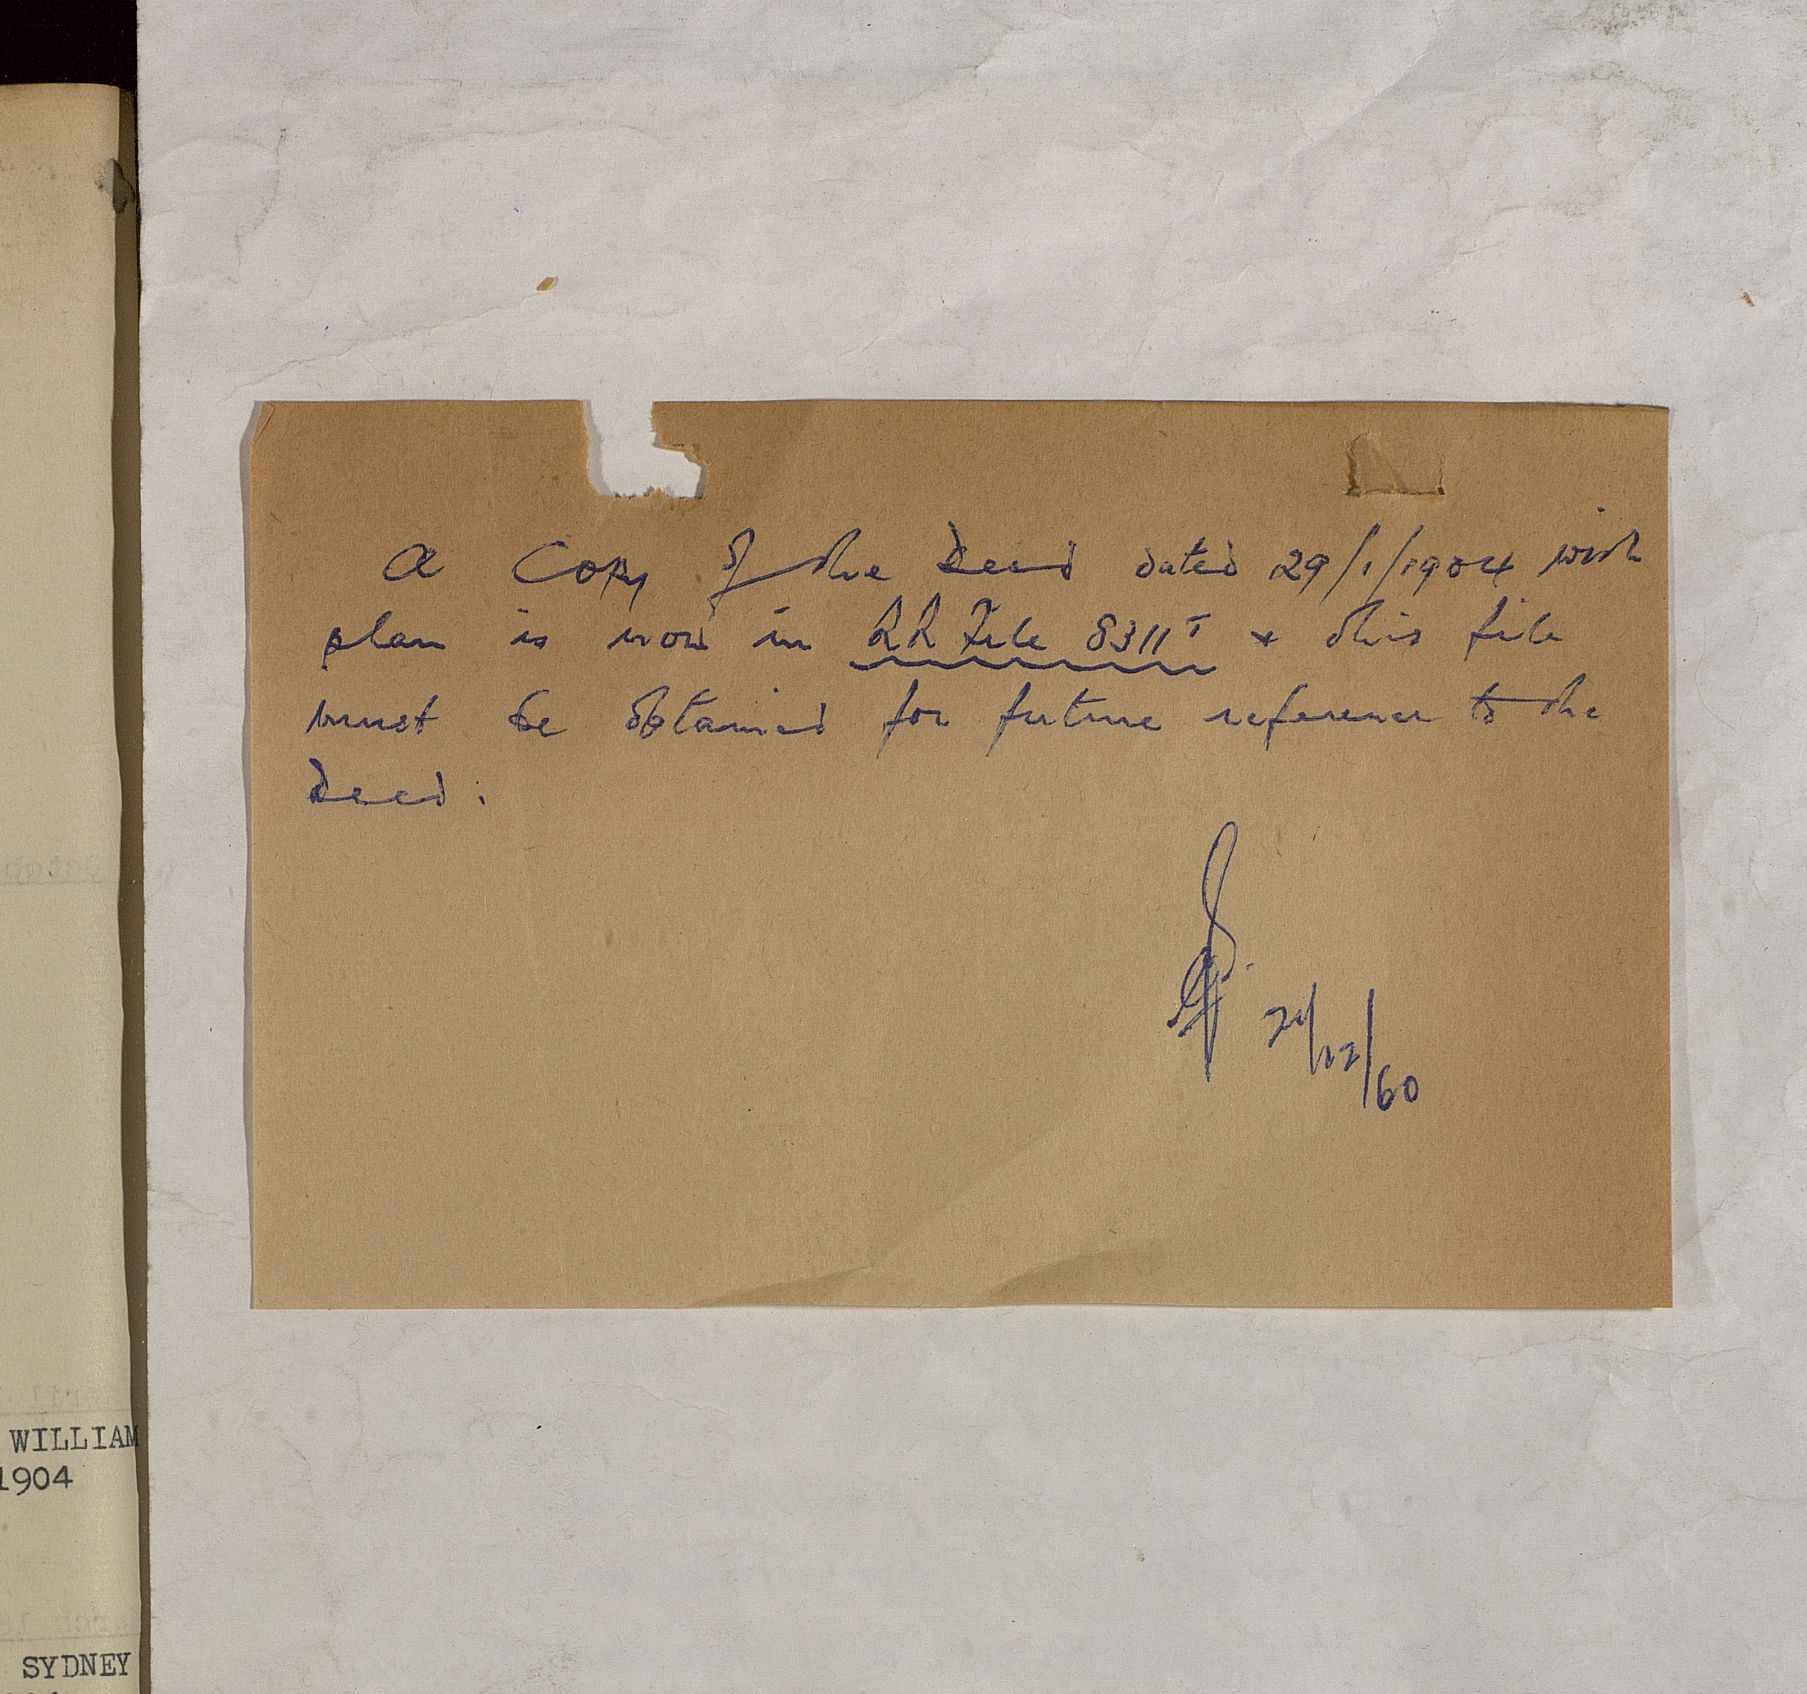 A Copy of the Deed dated 29/1/1904 with
plan is now in RR File 8311T & this file
must be obtained for future reference to the
Deed.
/12/60
WILLIAM
1904
SYDNEY